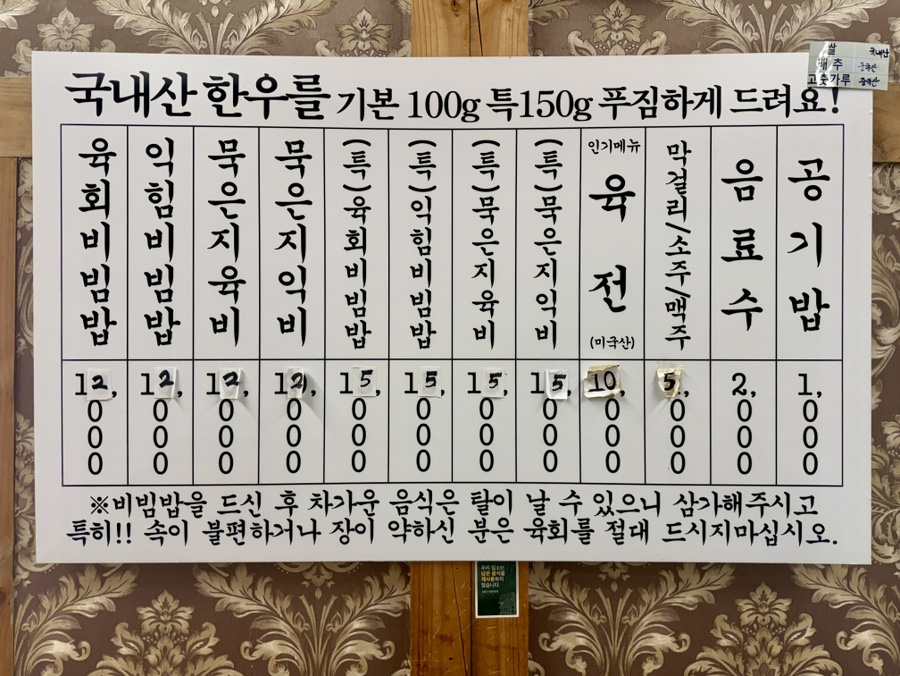 쌀 국내산
배추 중국산
고춧가루 중국산
국내산 한우를 기본 100g 특150g 푸짐하게 드려요!
육회비빔밥 12,000
익힘비빔밥 12,000
묵은지육비 12,000
묵은지익비 12,000
(특)육회비빔밥 15,000
(특)익힘비빔밥 15,000
(특)묵은지육비 15,000
(특)묵은지익비 15,000
인기메뉴
육전
(미국산)
10,000
막걸리/소주/맥주 5,000
음료수 2,000
공기밥 1,000
※비빔밥을 드신 후 차가운 음식은 탈이 날 수 있으니 삼가해주시고
특히!! 속이 불편하거나 장이 약하신 분은 육회를 절대 드시지마십시오.
우리 업소는
남은 음식을
재사용하지
않습니다.